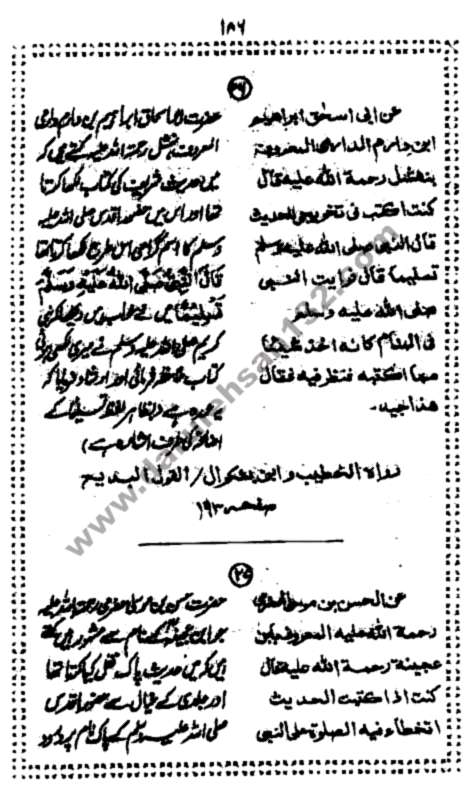 ١٨٦
عن ابى اسحٰق ابراهيم
ابن دارم الدارمى المعروف
بنهشل رحمة الله عليه قال
كنت اكتب فى تخريجى الحديث
قال النبى صلى الله عليه وسلم
تسليما قال فرايت النبى
صلى الله عليه وسلم
فى المنام كانه اخذ شيئا
مما اكتبه فنظر فيه فقال
هذا جيد۔
حضرت ابو اسحاق ابراہیم بن دارم دارمی
المعروف نہشل رحمۃ اللہ علیہ کہتے ہیں کہ
میں حدیث شریف کی کتاب لکھا کرتا
تھا اور اس میں حضور اقدس صلی اللہ علیہ
وسلم کا اسم گرامی اس طرح لکھا کرتا تھا
قَالَ النَّبِيُّ صَلَّى اللهُ عَلَيْهِ وَسَلَّمَ
تسلیماً میں نے خواب میں دیکھا کہ نبی
کریم صلی اللہ علیہ وسلم نے میری لکھی ہوئی
کتاب ملاحظہ فرمائی اور ارشاد فرمایا کہ
یہ عمدہ ہے (بظاہر لفظ تسلیماً کے
اضافہ کی طرف اشارہ ہے)
رواه الخطيب وابن بشكوال / القول البديع
صفحہ ١٩٣
٢٥
عن الحسن بن موسى الحضرمى
رحمة الله عليه المعروف بابن
عجينة رحمة الله عليه قال
كنت اذا كتبت الحديث
اتخطاء فيه الصلوة على النبى
حضرت حسن بن موسیٰ حضرمی رحمۃ اللہ علیہ
جو ابن عجینہ کے نام سے مشہور ہیں کہتے
ہیں کہ میں حدیث پاک نقل کیا کرتا تھا
اور جلدی کے خیال سے حضور اقدس
صلی اللہ علیہ وسلم کے پاک نام پر درود